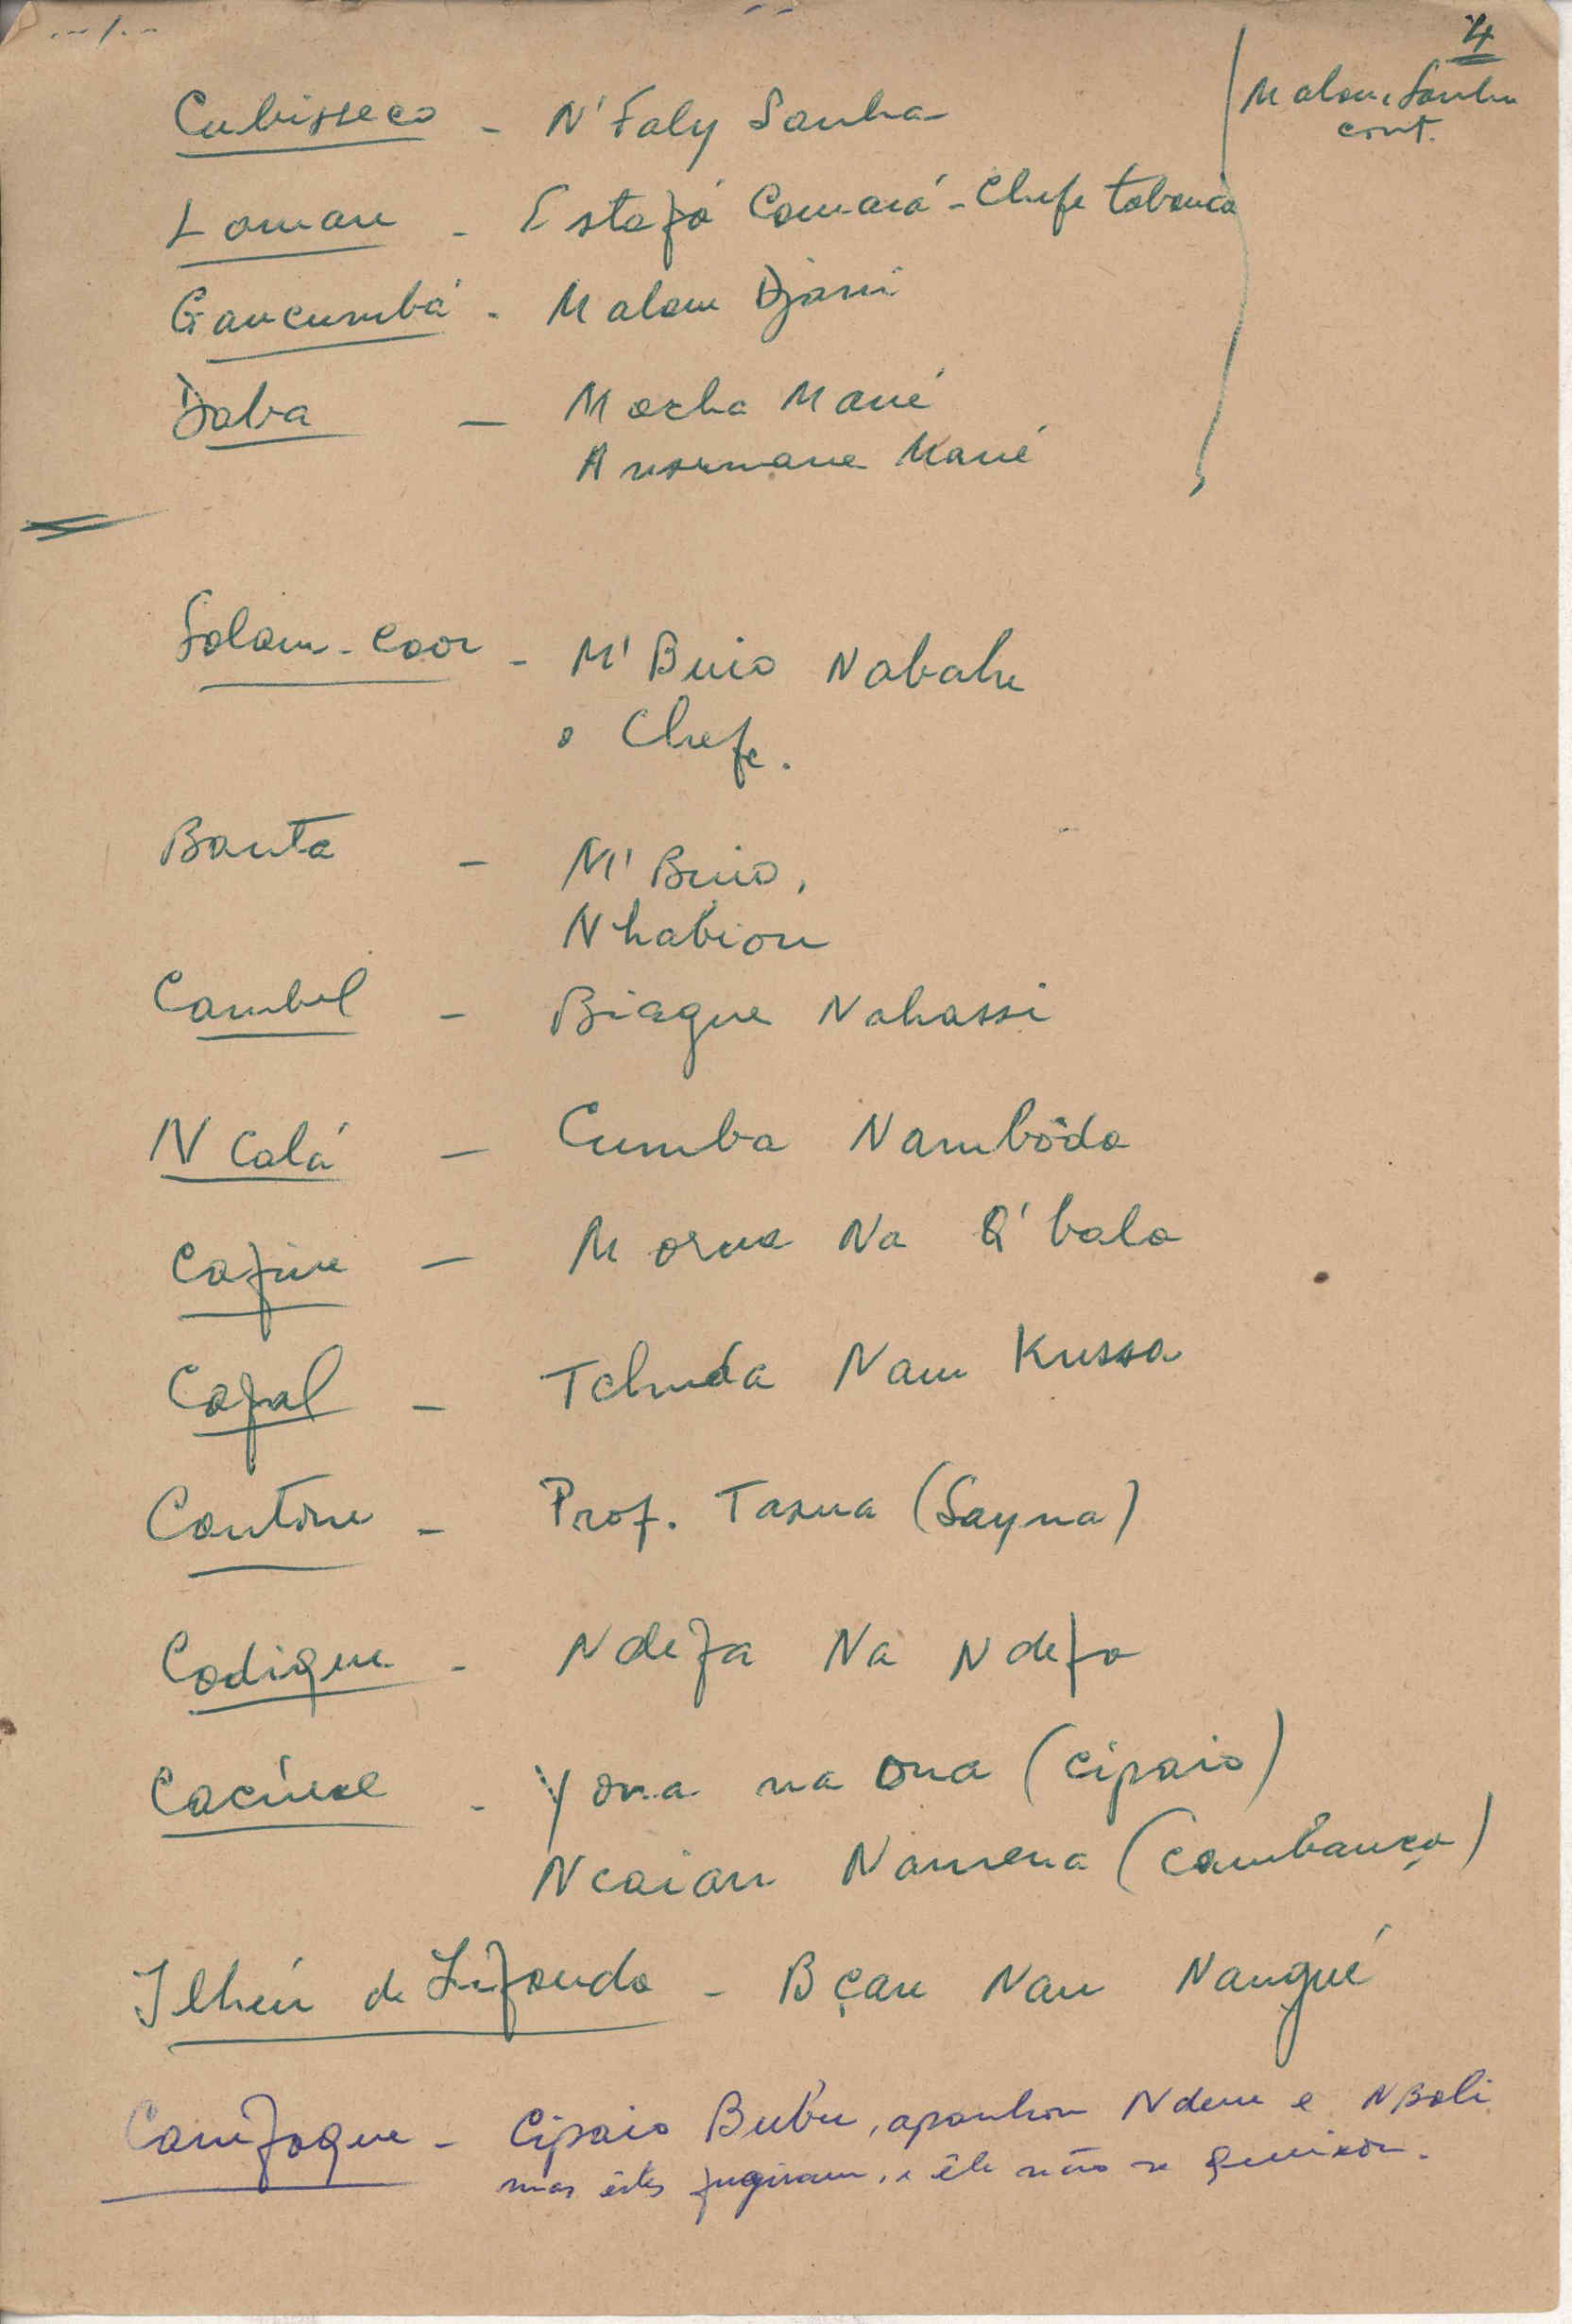 ...-/.--
4
Malam Sanha
cont.
Cubisseco - N'Faly Sanha
Laman - Estafó Camará - Chefe tabanca
Gancumbá - Malam Djani
Daba - Mocha Mané
Ansumane Mané
Salam-Coor - M'Buio Nabahu
o Chefe.
Banta - M'Buio,
Nhabion
Cambil - Biague Nahassi
N Calá - Cumba Nambôda
Cafine - Morna Na Q'bala
Cafal - Tchuda Nam Kussa
Cantone - Prof. Tasna (Sayna)
Cadique - Ndefa Na Ndefa
Cacine - Yona na Ona (cipaio)
Ncaian Namena (cambança)
Ilhéu de Lifanda - Bçan Nan Nangué
Canifaque - Cipaio Bubu, apanhou Ndene e NBali
mas êstes fugiram, e êle não se queixou.